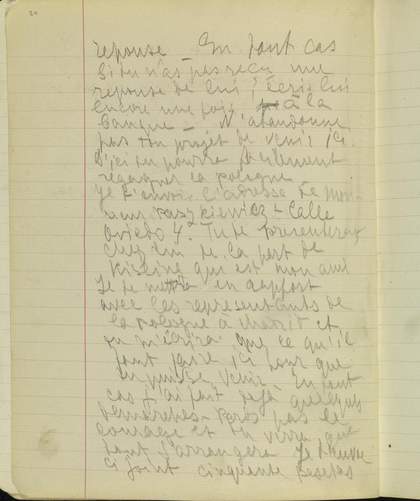 20
reponse _ En tout cas
si tu n'as pas reçu une
reponse de lui ? Ecris lui
encore une fois à la
banque _ N'abandonne
pas ton projet de venir ici.
D'ici tu pourra facilement
regagner la Pologne
Je t'envoi l'adresse de Mon-
sieur Paszkiewicz - Calle
Oviedo 4. Tu te presentera
chez lui de la part de
qui est mon ami
Il te mettra en rapport
avec les representants de
la Pologne a Madrit et
on m'ecrira que ce qu'il
faut faire ici pour que
tu puisse venir. En tout
cas j'ai fait deja quelques
demarches. Perds pas le
courage et tu verra que
tout s'arrangera Je t'envoi
ci joint cinquante pesetas